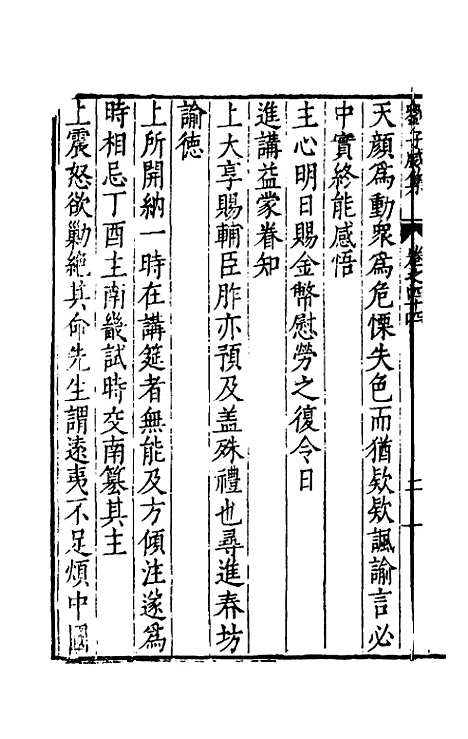 天顏爲動衆爲危慄失色而猶欵欵諷諭言必
中實終能感悟
主心明日賜金幣慰勞之復令日
進講益蒙眷知
上大享賜輔臣胙亦預及盖殊禮也尋進春坊
諭德
上所開納一時在講筵者無能及方傾注遂爲
時相忌丁酉主南畿試時交南簒其主
上震怒欲勦絕其命先生謂遠夷不足煩中國
卷之四十四